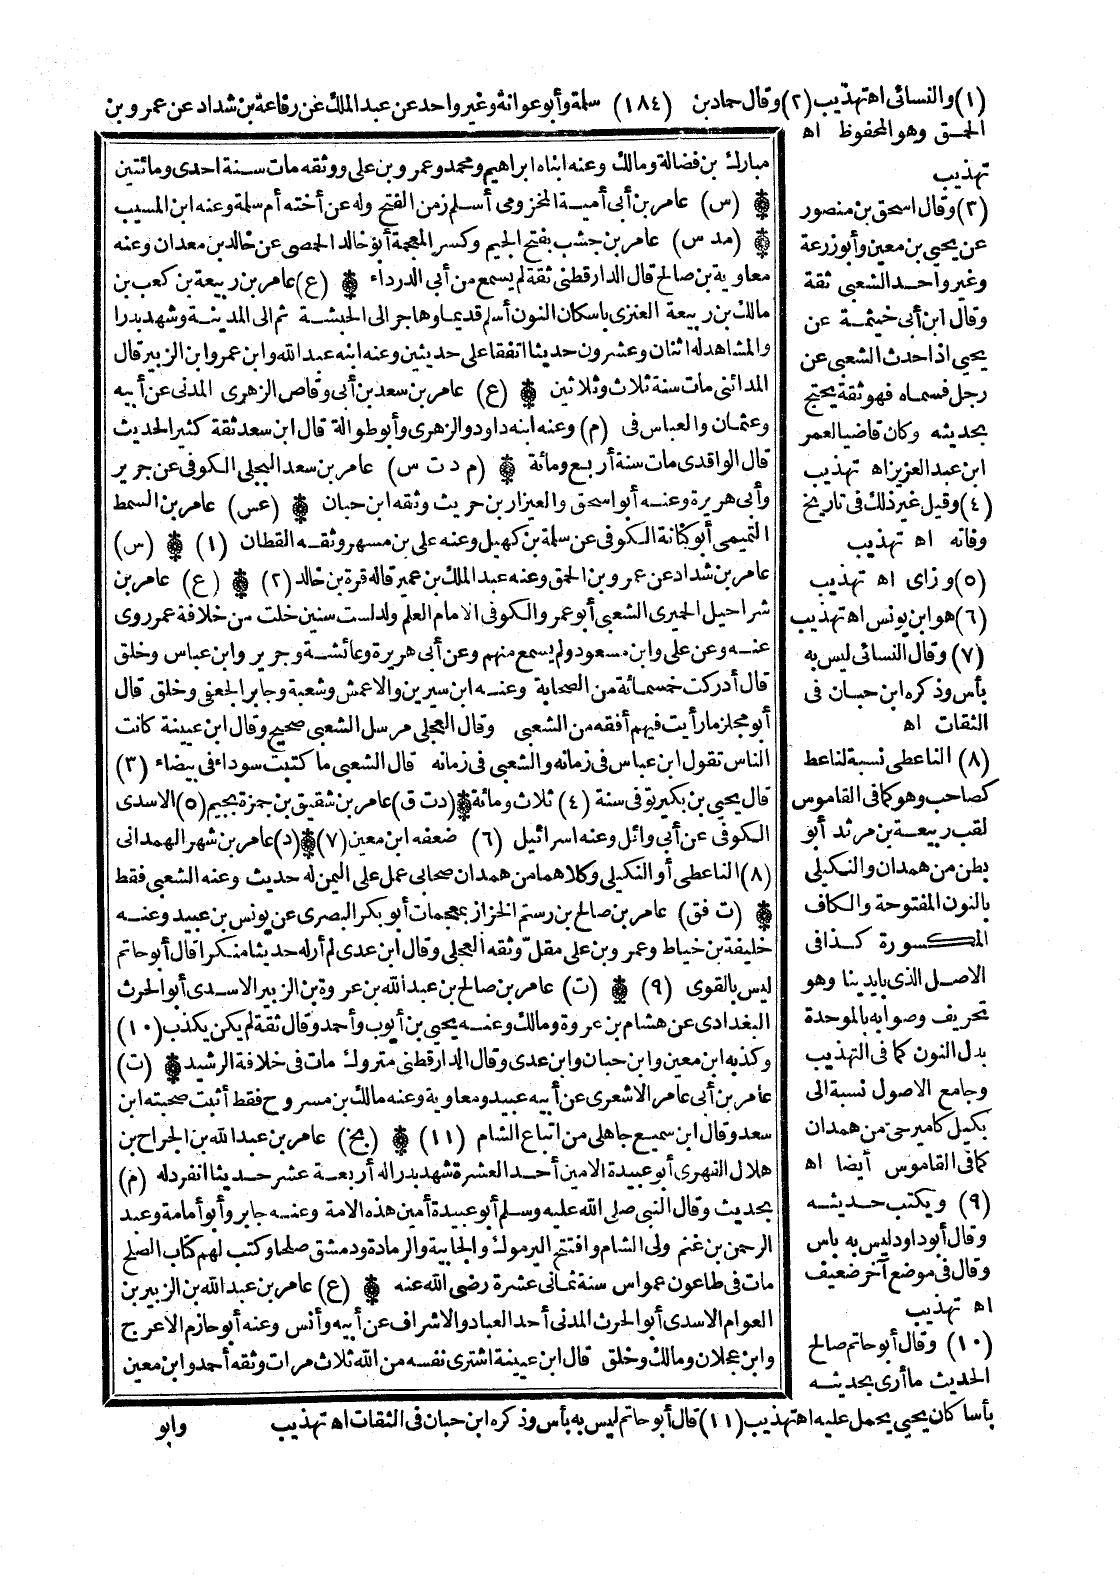 (١) والنسائى اه تهذيب (٢) وقال حماد بن (١٨٤) سلمة وأبو عوانة وغير واحد عن عبد الملك عن رفاعة بن شداد عن عمرو بن
الحمق وهو المحفوظ اه
تهذيب
(٣) وقال اسحق بن منصور
عن يحيى بن معين وأبو زرعة
وغير واحد الشعبى ثقة
وقال ابن أبى خيثمة عن
يحيى اذا حدث الشعبى عن
رجل فسماه فهو ثقة يحتج
بحديثه وكان قاضيا لعمر
ابن عبد العزيز اه تهذيب
(٤) وقيل غير ذلك فى تاريخ
وفاته اه تهذيب
(٥) وزاى اه تهذيب
(٦) هو ابن يونس اه تهذيب
(٧) وقال النسائى ليس به
بأس وذكره ابن حبان فى
الثقات اه
(٨) الناعطى نسبة لناعط
كصاحب وهو كما فى القاموس
لقب ربيعة بن مرثد أبو
بطن من همدان والنكيلى
بالنون المفتوحة والكاف
المكسورة كذا فى
الاصل الذى بايدينا وهو
تحريف وصوابه بالموحدة
بدل النون كما فى التهذيب
وجامع الاصول نسبة الى
بكيل كامير حى من همدان
كما فى القاموس أيضا اه
(٩) ويكتب حديثه
وقال أبو داود ليس به بأس
وقال فى موضع آخر ضعيف
اه تهذيب
(١٠) وقال أبو حاتم صالح
الحديث ما أرى بحديثه
بأسا كان يحيى يحمل عليه اه تهذيب (١١) قال أبو حاتم ليس به بأس وذكره ابن حبان فى الثقات اه تهذيب
مبارك بن فضالة ومالك وعنه ابناه ابراهيم ومحمد وعمرو بن على ووثقه مات سنة احدى ومائتين
(س) عامر بن أبى أمية المخزومى أسلم زمن الفتح وله عن أخته أم سلمة وعنه ابن المسيب
(مد س) عامر بن جشب بفتح الجيم وكسر المعجمة أبو خالد الحمصى عن خالد بن معدان وعنه
معاوية بن صالح قال الدارقطنى ثقة لم يسمع من أبى الدرداء (ع) عامر بن ربيعة بن كعب بن
مالك بن ربيعة العنزى باسكان النون أسلم قديما وهاجر الى الحبشة ثم الى المدينة وشهد بدرا
والمشاهد له اثنان وعشرون حديثا اتفقا على حديثين وعنه ابنه عبد الله وابن عمر وابن الزبير قال
المدائنى مات سنة ثلاث وثلاثين (ع) عامر بن سعد بن أبى وقاص الزهرى المدنى عن أبيه
وعثمان والعباس فى (م) وعنه ابنه داود والزهرى وأبو طوالة قال ابن سعد ثقة كثير الحديث
قال الواقدى مات سنة أربع ومائة (م د ت س) عامر بن سعد البجلى الكوفى عن جرير
وأبى هريرة وعنه أبو اسحق والعيزار بن حريث وثقه ابن حبان (عس) عامر بن السمط
التميمى أبو كنانة الكوفى عن سلمة بن كهيل وعنه على بن مسهر وثقه القطان (١) (س)
عامر بن شداد عن عمرو بن الحمق وعنه عبد الملك بن عمير قاله قرة بن خالد (٢) (ع) عامر بن
شراحيل الحميرى الشعبى أبو عمرو الكوفى الامام العلم ولد لست سنين خلت من خلافة عمر روى
عنه وعن على وابن مسعود ولم يسمع منهم وعن أبى هريرة وعائشة وجرير وابن عباس وخلق
قال أدركت خمسمائة من الصحابة وعنه ابن سيرين والاعمش وشعبة وجابر الجعفى وخلق قال
أبو مجلز ما رأيت فيهم أفقه من الشعبى وقال العجلى مرسل الشعبى صحيح وقال ابن عيينة كانت
الناس تقول ابن عباس فى زمانه والشعبى فى زمانه قال الشعبى ما كتبت سوداء فى بيضاء (٣)
قال يحيى بن بكير توفى سنة (٤) ثلاث ومائة (د ت ق) عامر بن شقيق بن جمزة بجيم (٥) الاسدى
الكوفى عن أبى وائل وعنه اسرائيل (٦) ضعفه ابن معين (٧) (د) عامر بن شهر الهمدانى
(٨) الناعطى أو النكيلى وكلاهما من همدان صحابى عمل على اليمن له حديث وعنه الشعبى فقط
(ت فق) عامر بن صالح بن رستم الخزاز بمعجمات أبو بكر البصرى عن يونس بن عبيد وعنه
خليفة بن خياط وعمرو بن على مقلّ وثقه العجلى وقال ابن عدى لم أر له حديثا منكرا قال أبو حاتم
ليس بالقوى (٩) (ت) عامر بن صالح بن عبد الله بن عروة بن الزبير الاسدى أبو الحرث
البغدادى عن هشام بن عروة ومالك وعنه يحيى بن أيوب وأحمد وقال ثقة لم يكن يكذب (١٠)
وكذبه ابن معين وابن حبان وابن عدى وقال الدارقطنى متروك مات فى خلافة الرشيد (ت)
عامر بن أبى عامر الاشعرى عن أبيه عبيد ومعاوية وعنه مالك بن مسروح فقط أثبت صحبته ابن
سعد وقال ابن سميع جاهلى من اتباع الشام (١١) (بخ) عامر بن عبد الله بن الجراح بن
هلال الفهرى أبو عبيدة الامين أحد العشرة شهد بدرا له أربعة عشر حديثا انفرد له (م)
بحديث وقال النبى صلى الله عليه وسلم أبو عبيدة أمين هذه الامة وعنه جابر وأبو أمامة وعبد
الرحمن بن غنم ولى الشام وافتتح اليرموك والجابية والرمادة ودمشق صلحا وكتب لهم كتاب الصلح
مات فى طاعون عمواس سنة ثمانى عشرة رضى الله عنه (ع) عامر بن عبد الله بن الزبير بن
العوام الاسدى أبو الحرث المدنى أحد العباد والاشراف عن أبيه وأنس وعنه أبو حازم الاعرج
وابن عجلان ومالك وخلق قال ابن عيينة اشترى نفسه من الله ثلاث مرات وثقه أحمد وابن معين
وابو